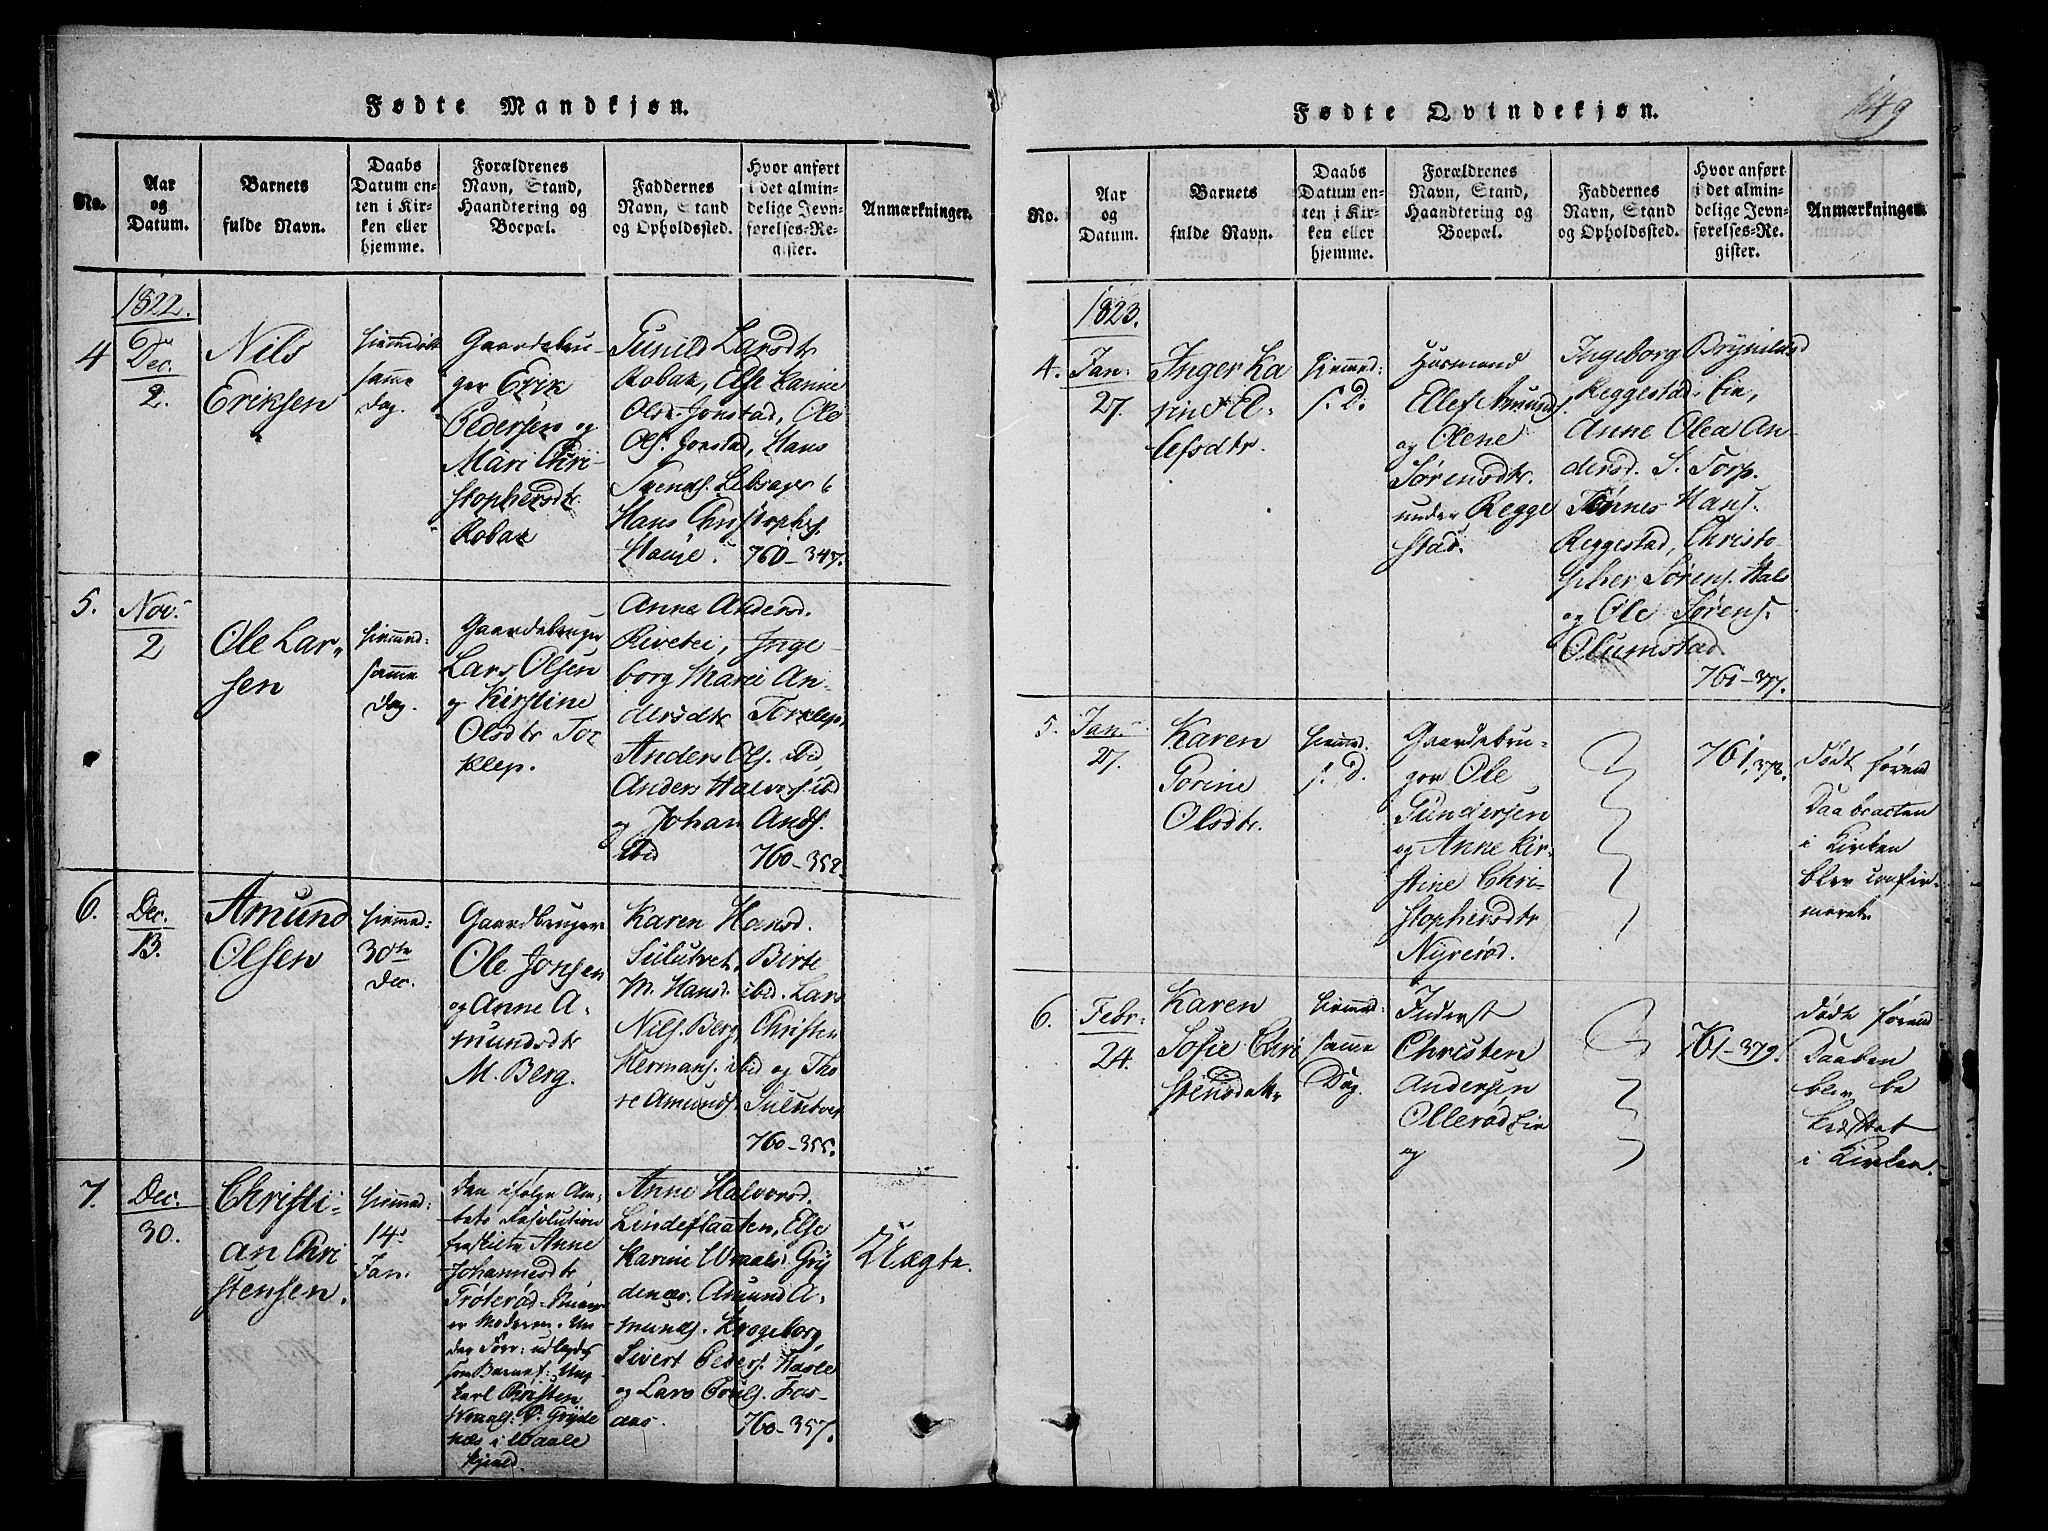 Fødte Mandkjøn.
No.
Aar
og
Datum.
Barnets
fulde Navn.
Daabs
Datum en-
ten i Kir-
ken eller
hjemme.
Forældrenes
Navn, Stand,
Haandtering og
Boepæl.
Faddernes
Navn, Stand
og Opholdssted.
Hvor anført
i det almin-
delige Jevn-
førelses-Re-
gister.
Anmærkninger.
1822.
4
Dec.
2.
Nils
Eriksen
hiemdøbt
samme
Dag.
Gaardebru-
ger Erik
Pedersen og
Mari Chri-
stophersdtr
Robak
Gunild Larsdtr
Robak, Else Karine
Olsd. Jonstad, Ole
Ols. Jonstad, Hans
Svends.
Hans Christophers.
Hauge.
760-347.
5.
Nov.
2
Ole Lar-
sen
hiemmed:
samme
Dag.
Gaardebruger
Lars Olsen
og Kirstine
Olsdtr Tor
klep.
Anne Andersd.
Inge-
borg Marei An-
dersdtr Torklep,
Anders Ols. ibid,
Anders Halvors. ibd
og Johan Ands.
ibid
760-352.
6.
Dec.
13.
Amund
Olsen
hiemmed:
30te
Dec.
Gaardbruger
Ole Jonsen
og Anne A-
mundsdtr
M. Berg.
Karen Hansd.
Birte
M. Hansd. ibid. Lars
Nils. Berg, Christen
Hermans. ibid og Tho
re Amunds.
760-355.
7.
Dec.
30.
Christi-
an Chri
stensen.
hiemmed:
14
Jan:
Den ifølge Am-
tets Resolution
fraskilte Anne
Johannesdtr,
Trøterød
er Moderen.
Barnef: Ung-
karl Christen
i Waale
Anne Halvorsd.
Lindeflaaten, Else
Karine
Amund A-
munds. Krogeborg,
Sivert Peders.
og Lars Pouls. Tas-
aas.
760-357.
Uægte.
149
Fødte Qvindekjøn.
No.
Aar
og
Datum.
Barnets
fulde Navn.
Daabs
Datum en-
ten i Kir-
ken eller
hjemme.
Forældrenes
Navn, Stand,
Haandtering og
Boepæl.
Faddernes
Navn, Stand
og Opholdssted.
Hvor anført
i det almin-
delige Jevn-
førelses-Re-
gister.
Anmærkninger.
1823.
4.
Jan:
27.
Inger Ka
rine El-
lefsdtr.
hiemmed:
s. D.
Huusmand
Ellef Amunds.
og Olene
Sørensdtr.
under Regge
stad.
Ingeborg Brynilsd
Reggestad Eie,
Anne Olea An-
dersd. S. Torp.
Tønnes Hans.
Reggestad, Christo-
pher Sørens. Hals
og Ole Sørens.
Olumstad
760-377.
5.
Jan.
27.
Karen
Gorine
Olsdtr.
hiemmed.
s. D.
Gaardebru-
ger Ole
Gundersen
og Anne Kir-
stine Chri-
stophersdtr
Nyrerød.
761, 378.
Dødt førend
Daabsacten
i Kirken
blev confir-
meret.
6.
Febr:
24.
Karen
Sofie Chri
stensdatter
hiemmed:
samme
Dag.
Inderst
Christen
Andersen
Ollerød Eie
og
761-379.
Dødt førend
Daaben
blev be
kræftet
i Kirken.